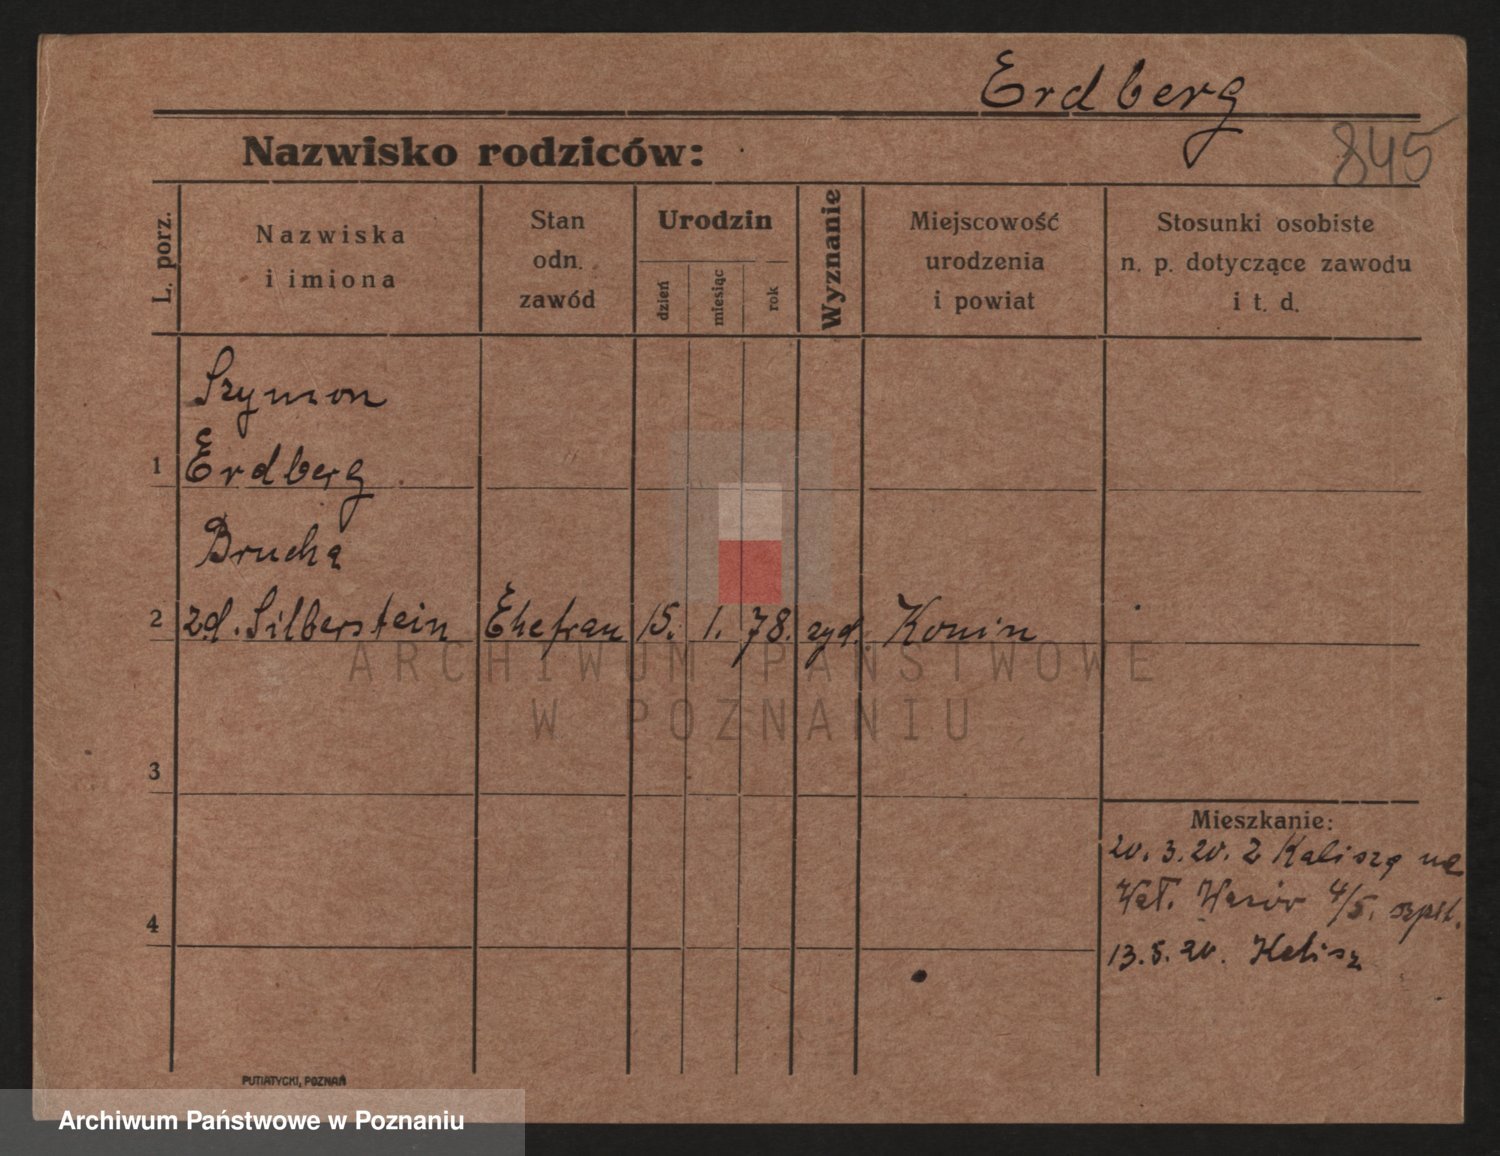 Erdberg
845
Nazwisko rodziców:
L. porz.
Nazwiska
i imiona
Stan
odn.
zawód
Urodzin
dzień
miesiąc
rok
Wyznanie
Miejscowość
urodzenia
i powiat
Stosunki osobiste
n. p. dotyczące zawodu
i t. d.
Szymon
1 Erdberg
Brucha
2 zd. Silberstein Ehefrau 15. 1. 78. żyd. Konin
ARCHIWUM PAŃSTWOWE
W POZNANIU
3
Mieszkanie:
20. 3. 20. z Kalisza na
4/5. szpit.
4
13. 5. 20. Kalisz
PUTIATYCKI, POZNAŃ
Archiwum Państwowe w Poznaniu